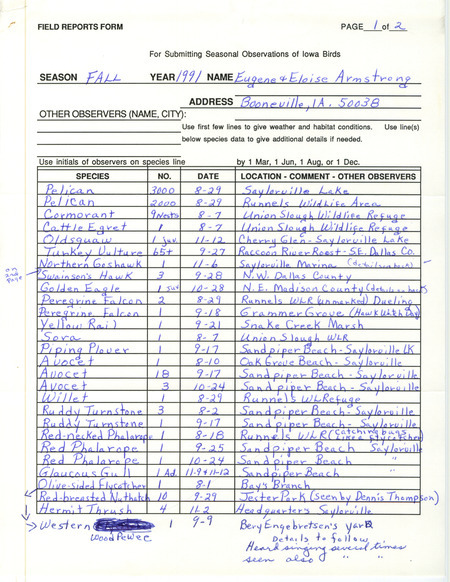 FIELD REPORTS FORM PAGE 1 of 2
For Submitting Seasonal Observations of Iowa Birds
SEASON FALL YEAR 1991 NAME Eugene & Eloise Armstrong
ADDRESS Booneville, IA. 50038
OTHER OBSERVERS (NAME, CITY):
Use first few lines to give weather and habitat conditions. Use line(s)
below species data to give additional details if needed.
Use initials of observers on species line by 1 Mar, 1 Jun, 1 Aug, or 1 Dec.
SPECIES NO. DATE LOCATION - COMMENT - OTHER OBSERVERS
Pelican 3000 8-29 Saylorville Lake
Pelican 2000 8-29 Runnels Wildlife Area
Cormorant 9 Nests 8-7 Union Slough Wildlife Refuge
Cattle Egret 1 8-7 Union Slough Wildlife Refuge
Oldsquaw 1 juv. 11-12 Cherry Glen - Saylorville Lake
Turkey Vulture 65+ 9-27 Raccoon River Roost - S.E. Dallas Co.
Northern Goshawk 1 11-6 Saylorville Marina
Swainson's Hawk 3 9-28 N.W. Dallas County
Golden Eagle 1 10-28 N.E. Madison County
Peregrine Falcon 2 8-29 Runnels WLR (unmarked) Dueling
Peregrine Falcon 1 9-18 Grammer Grove (Hawk Watch Day)
Yellow Rail 1 9-21 Snake Creek Marsh
Sora 1 8-7 Union Slough WLR
Piping Plover 1 9-17 Sandpiper Beach - Saylorville LK
Avocet 1 8-10 Oak Grove Beach - Saylorville
Avocet 18 9-17 Sandpiper Beach - Saylorville
Avocet 3 10-24 Sandpiper Beach - Saylorville
Willet 1 8-29 Runnels WL Refuge
Ruddy Turnstone 3 8-2 Sandpiper Beach - Saylorville
Ruddy Turnstone 1 9-17 Sandpiper Beach - Saylorville
Red-necked Phalarope 1 8-18 Runnels WLR (Catching bugs like a flycatcher)
Red Phalarope 1 9-25 Sandpiper Beach Saylorville
Red Phalarope 1 10-24 Sandpiper Beach "
Glaucous Gull 1 Ad. 11-9 & 11-12 Sandpiper Beach "
Olive-sided Flycatcher 1 8-1 Bay's Branch
Red-breasted Nuthatch 10 9-29 Jester Park (Seen by Dennis Thompson)
Hermit Thrush 4 11-2 Headquarters Saylorville
Western 1 9-9 Bery Engebretsen's yard
Wood Pewee Details to follow
Heard singing several times
seen also " "